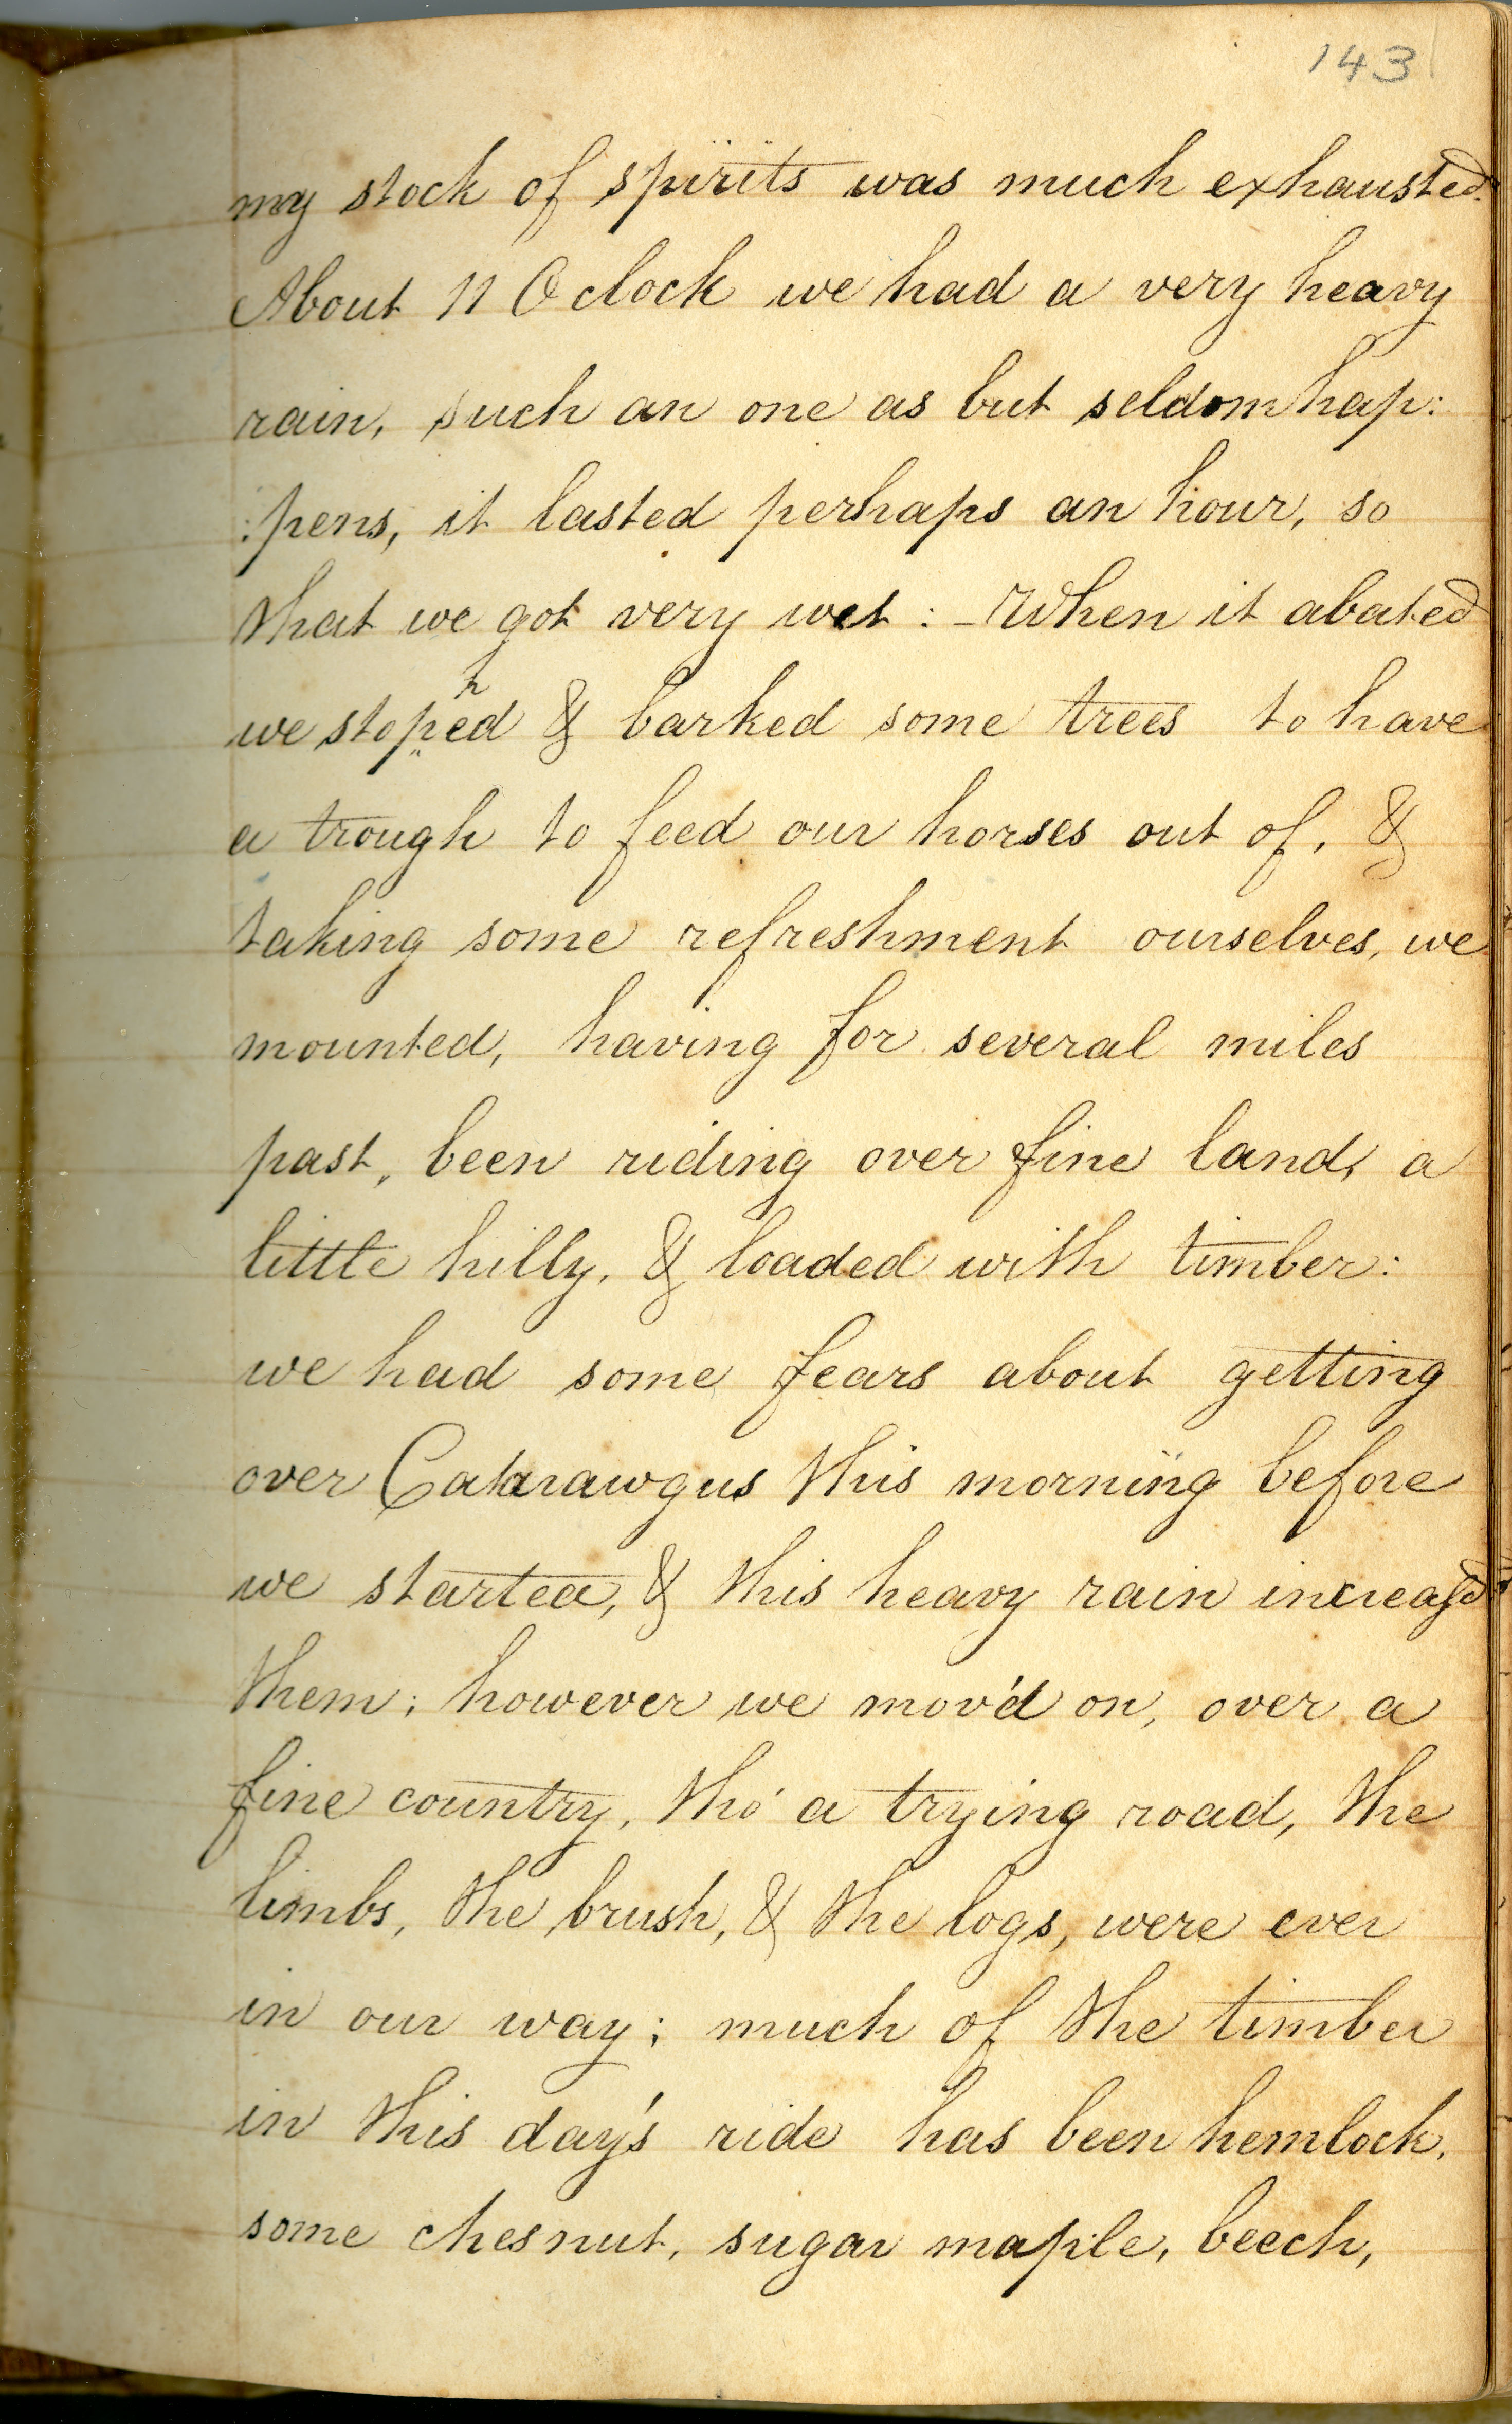 143
my stock of spirits was much exhausted.
About 11 O clock we had a very heavy
rain, such an one as but seldom hap:
:pens, it lasted perhaps an hour, so
that we got very wet : - When it abated
we stopped & barked some trees to have
a trough to feed our horses out of, &
taking some refreshment ourselves, we
mounted, having for several miles
past, been riding over fine land, a
little hilly, & loaded with timber:
we had some fears about getting
over Catarawgus this morning before
we started, & this heavy rain increas'd
them; however we mov'd on, over a
fine country, tho' a trying road, the
limbs, the brush, & the logs, were ever
in our way; much of the timber
in this day's ride has been hemlock,
some chesnut, sugar maple, beech,